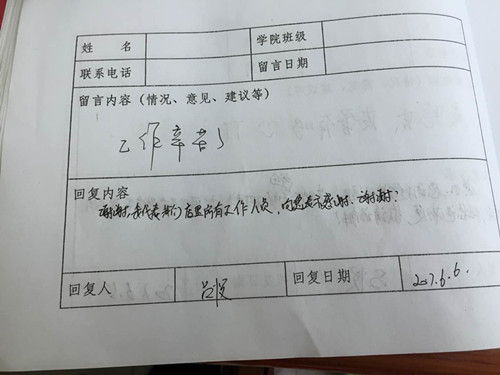 姓 名 学院班级
联系电话 留言日期
留言内容（情况、意见、建议等）
工作辛苦
回复内容
谢谢,我代表我们店里所有工作人员,向您表示感谢、谢谢!
回复人 回复日期 2017.6.6.